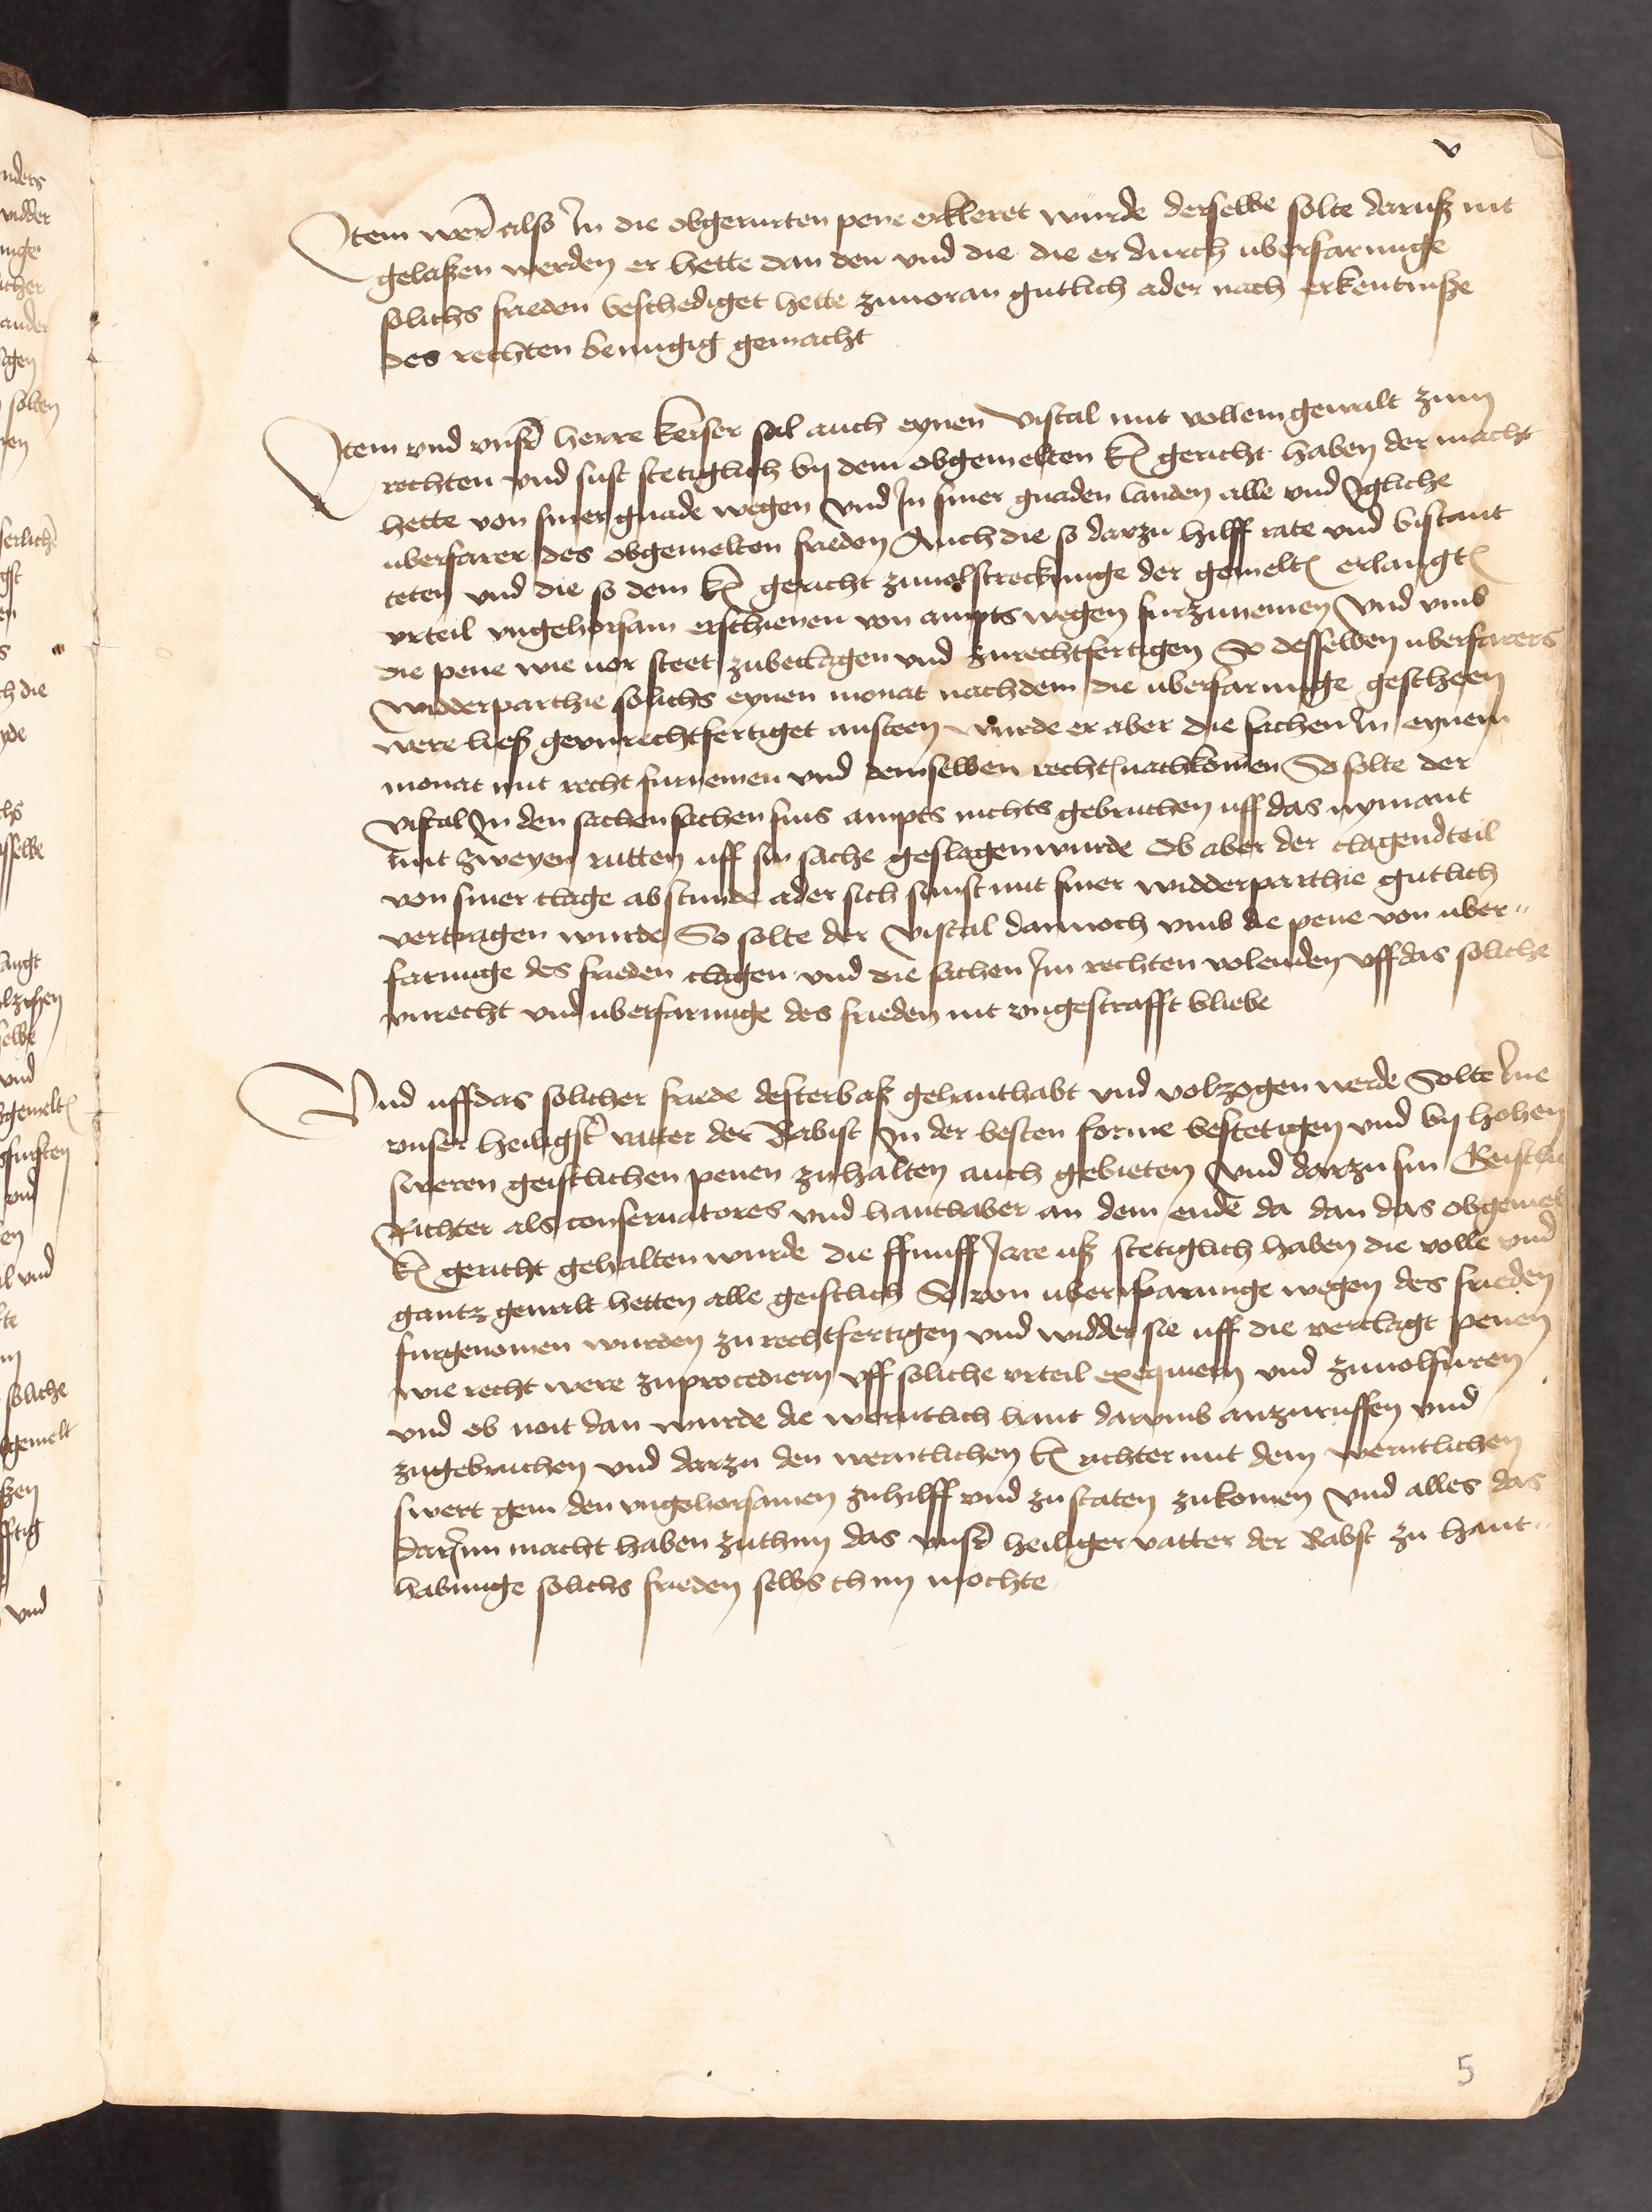 v
Item wer also In die obgerurten pene erkleret wurde derselbe solte daruß nit
gelaßen werden er hette dan den vnd die die er durch uberfarunge
solichs frieden beschediget hette zuuoran gutlich ader nach erkentnuße
des rechten benugig gemacht
Item vnd vnser herre keiser sal auch eynen viscal mit vollem gewalt zum
rechten vnd sust stetiglich by dem obgemelten k gericht haben der macht
hette von siner gnade wegen vnd In siner gnaden landen alle vnd Igliche
uberfarer des obgemelten frieden Auch die so darzu hilff rate vnd bistant
teten vnd die so dem k gericht zuuolstreckunge der gemelt erlangt
vrteil vngehorsam erschienen von ampts wegen furzunemen vnd vmb
die pene wie uor steet zubeclagen vnd zurechtfertigen So desselben uberfarers
widderparthie solichs eynen monat nachdem die uberfarunge gescheen
were ließ gevnrechtfertiget ansteen wurde er aber die sachen In eynem
monat mit recht furnemen vnd demselben recht nachkomen So solte der
viscal In den sachen sachen sins ampts nichts gebruchen uff das nymant
mit zweyen rutten uff sin sache geslagen wurde Ob aber der clagendteil
von siner clage abstunde ader sich sunst mit siner widderparthie gutlich
vertragen wurde So solte der viscal dannoch vmb die pene von uber"
farunge des frieden clagen vnd die sachen Im rechten volenden vff das soliche
vnrecht vnd uberfarunge des frieden nit vngestrafft bliebe
Vnd uffdas solicher friede desterbaß gehanthabt vnd volzogen werde Solte Ine
vnser heiligst vatter der Babist In der besten forme bestetigen vnd by hohen
sweren geistlichen penen zuhalten auch gebieten vnd darzu sin Geistlic
Richter als conseruatores vnd hanthaber an dem ende da dan das obgemel
k gericht gehalten wurde die ffunff Jare uß stetiglich haben die volle vnd
gantz gewalt hetten alle geistlich So von uberfarunge wegen des frieden
furgenomen wurden zu rechtfertigen vnd widder sie uff die verclagt penen
wie recht were zuprocediern vff soliche vrteil exequiern vnd zuuolfuren
vnd ob noit dan wurde die werntlich hant darvmb anzuruffen vnd
zugebruchen vnd darzu den werntlichen k richter mit dem werntlichen
swert gein den vngehorsamen zuhilff vnd zu staten zukomen vnd alles das
darInn macht haben zuthun das vnser heiliger vatter der Babst zu hant"
habunge solichs frieden selbs thun mochte
5